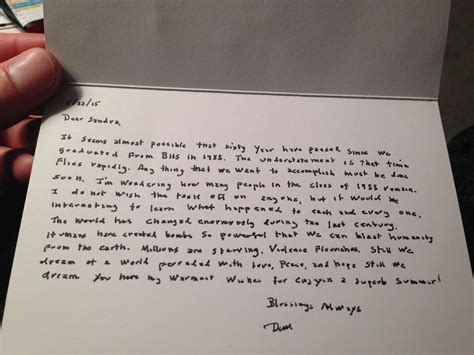 5/22/15
Dear Sandra,
It seems almost possible that sixty year have passed since we
graduated from BHS in 1955. The understatement is that time
flies rapidly. Any thing that we want to accomplish must be done
soon. I'm wondering how many people in the class of 1955 remain.
I do not wish the task off on anyone, but it would be
interesting to learn what happened to each and every one.
The world has changed enormously during the last century.
have created bombs so powerful that we can blast humanity
from the earth. Millions are starving. Violence flourishes. Still we
dream of a world pervaded with love, peace, and hope still we
dream. You have my warmest wishes for a superb summer!
Blessings Always